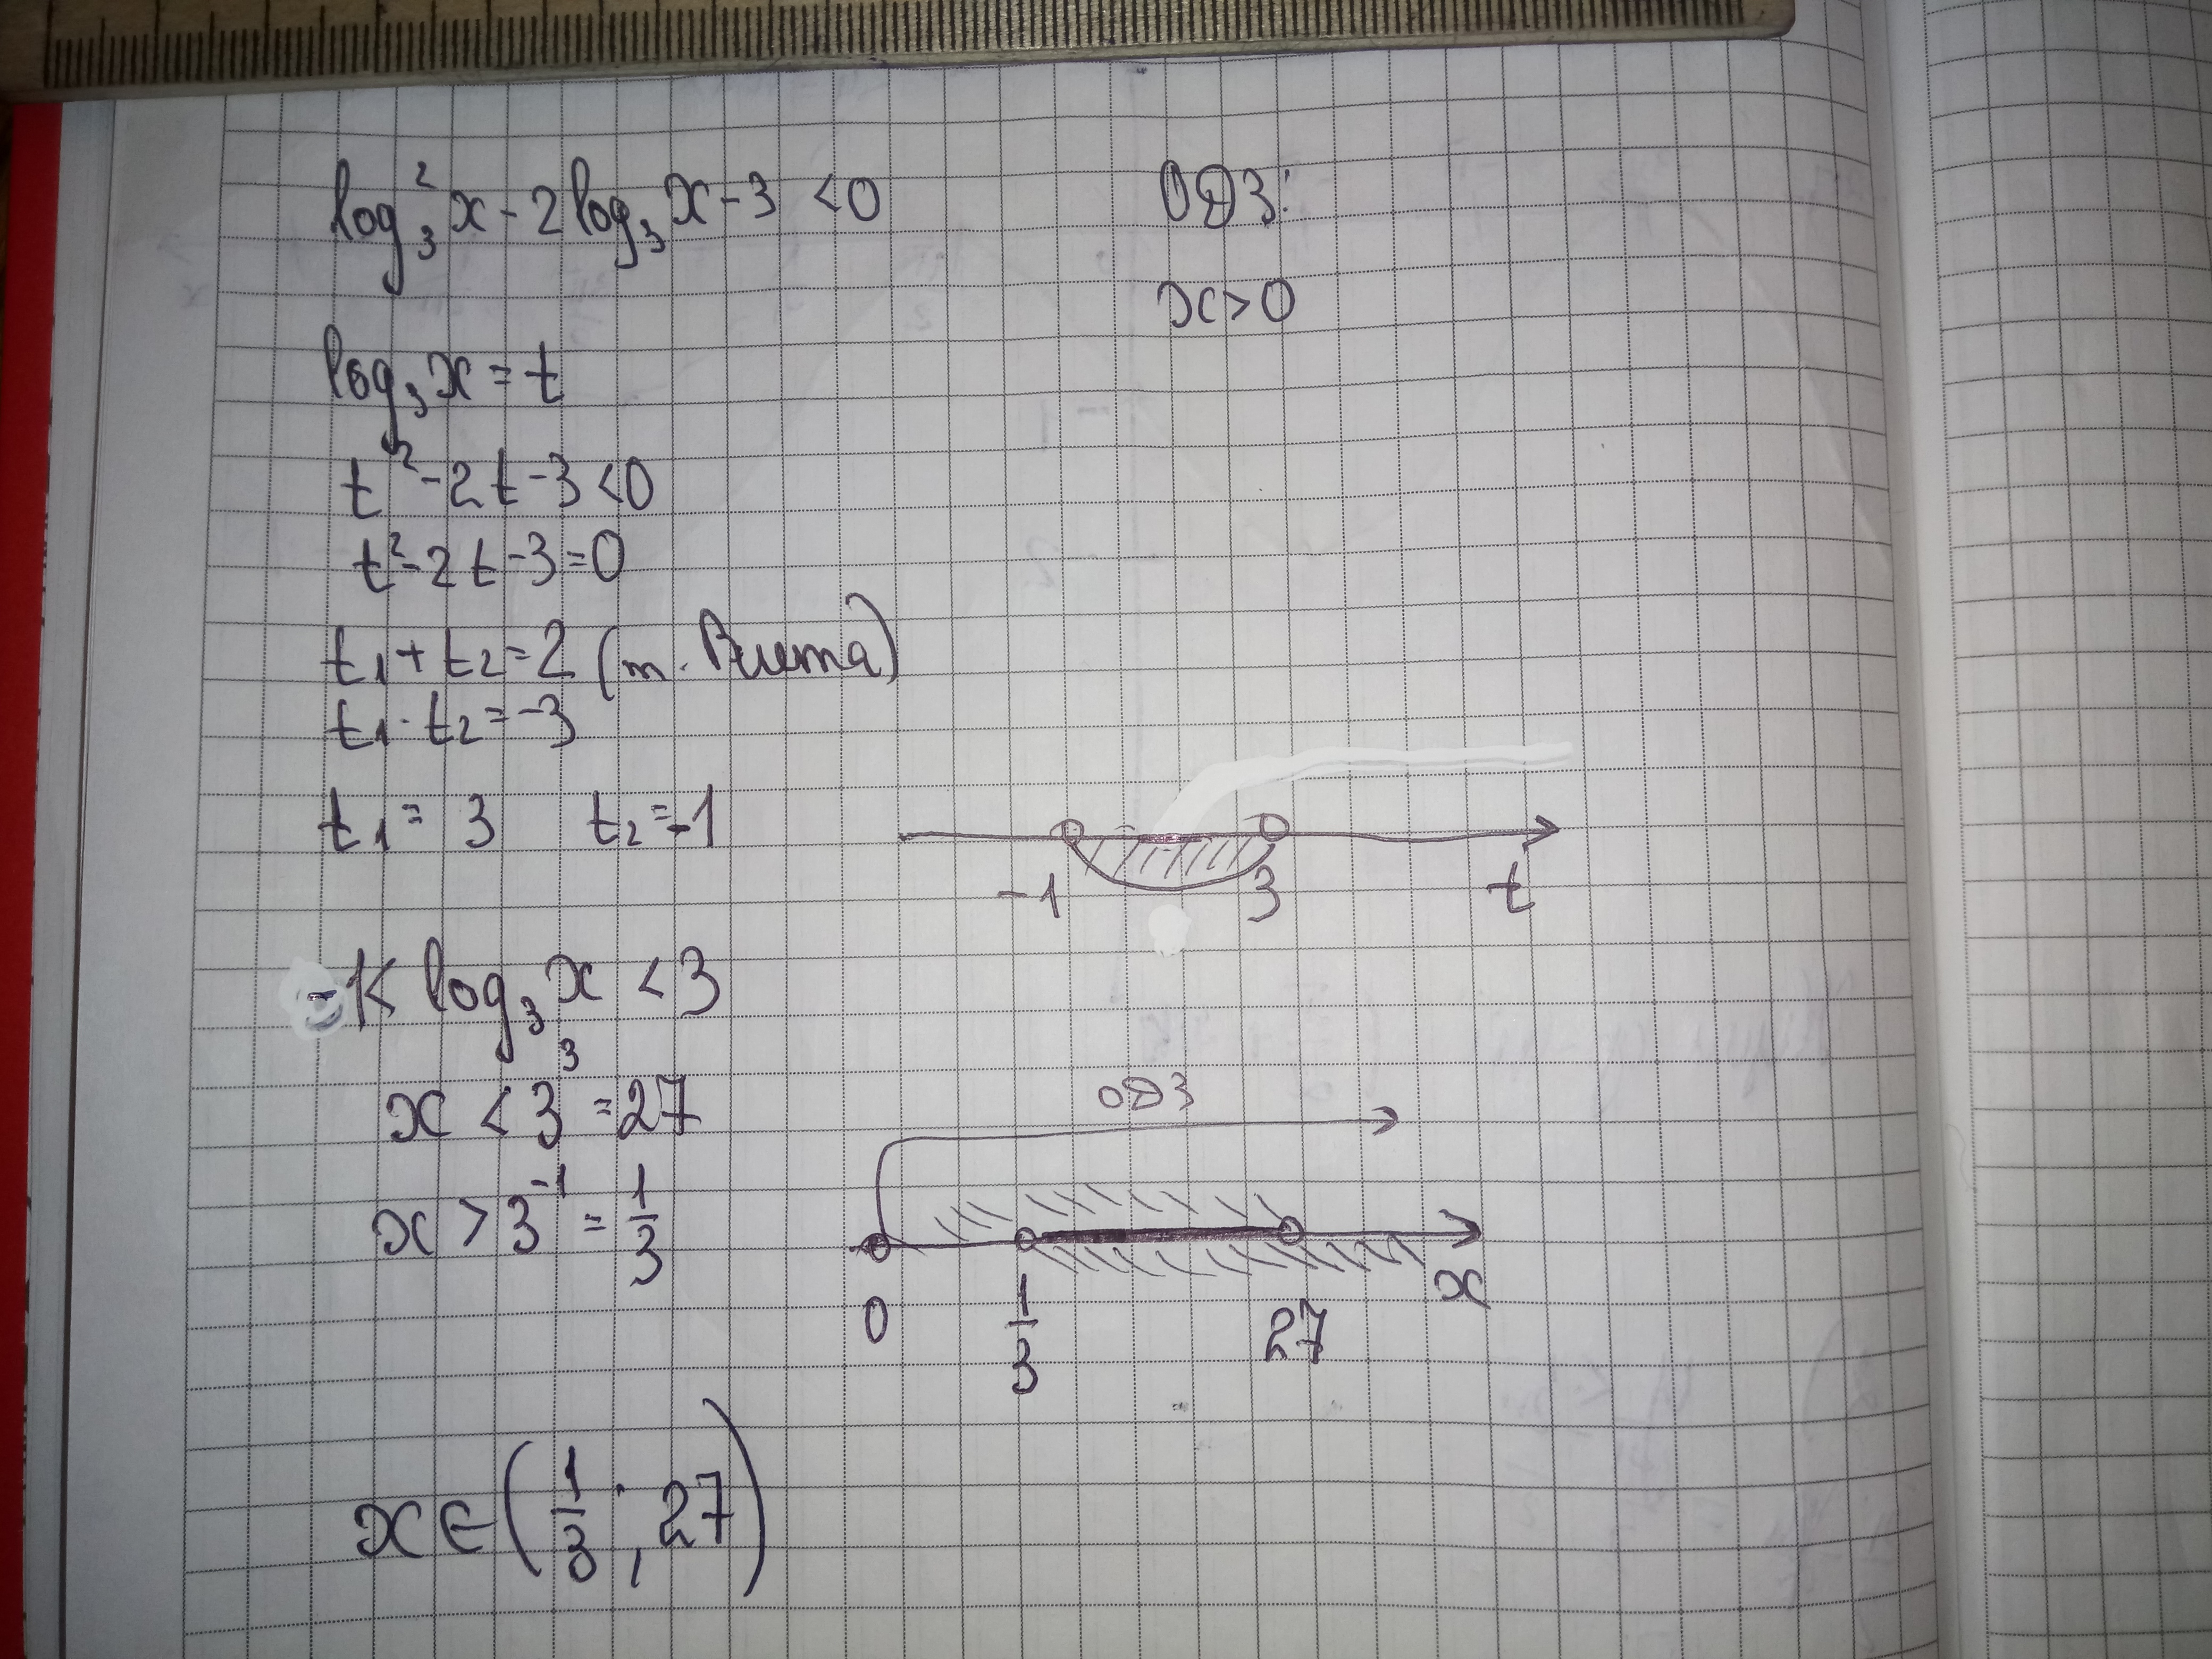 log₃²x - 2log₃x - 3 < 0
ОДЗ:
x > 0
log₃x = t
t² - 2t - 3 < 0
t² - 2t - 3 = 0
t₁ + t₂ = 2 (т. Виета)
t₁ · t₂ = -3
t₁ = 3 t₂ = -1
-1 3 t
-1 < log₃x < 3
x < 3³ = 27
x > 3⁻¹ = 1/3
ОДЗ
0 1/3 27 x
x ∈ (1/3 ; 27)